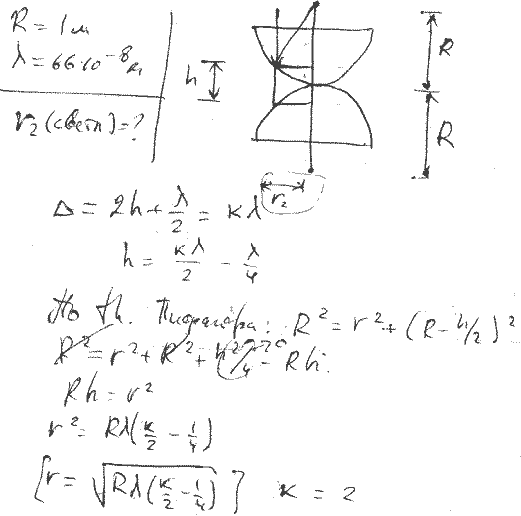 R = 1м
λ = 66·10⁻⁸м
r₂ (светл) = ?
h
R
R
r₂
Δ = 2h + λ/2 = кλ
h = кλ/2 - λ/4
По th. Пифагора: R² = r² + (R - h/2)²
R² = r² + R² + h²/4 - Rh
Rh = r²
r² = Rλ(к/2 - 1/4)
[r = √(Rλ(к/2 - 1/4))] к = 2